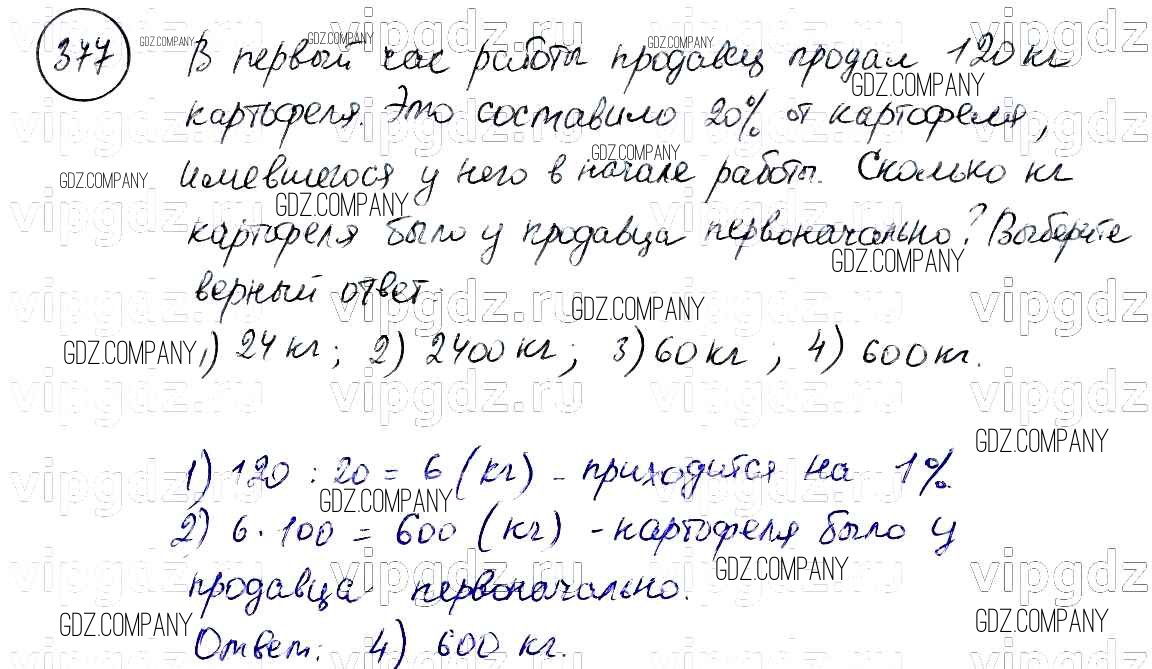 377 В первый час работы продавец продал 120 кг
картофеля. Это составило 20% от картофеля,
имевшегося у него в начале работы. Сколько кг
картофеля было у продавца первоначально? Выберите
верный ответ.
1) 24 кг; 2) 2400 кг; 3) 60 кг; 4) 600 кг.
1) 120 : 20 = 6 (кг) - приходится на 1%.
2) 6 · 100 = 600 (кг) - картофеля было у
продавца первоначально.
Ответ: 4) 600 кг.